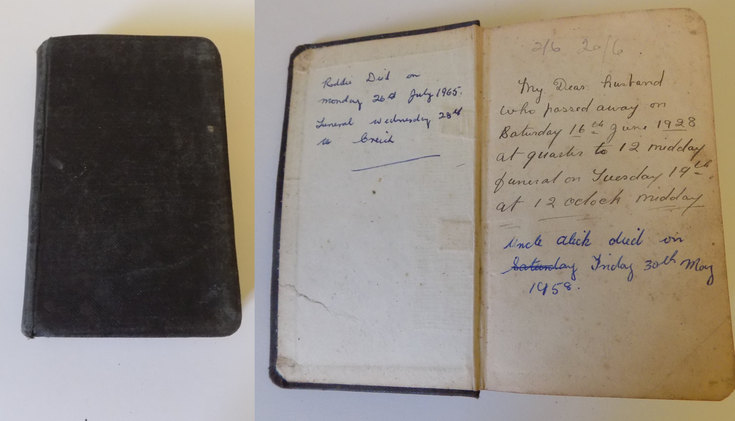 Roddie Died on
Monday 26th July 1965.
Funeral Wednesday 28th
to Creich
2/6 20/6
My Dear husband
who passed away on
Saturday 16th June 1928
at quarter to 12 midday
funeral on Tuesday 19th
at 12 oclock midday
Uncle Alick died on
Saturday Friday 30th May
1958.